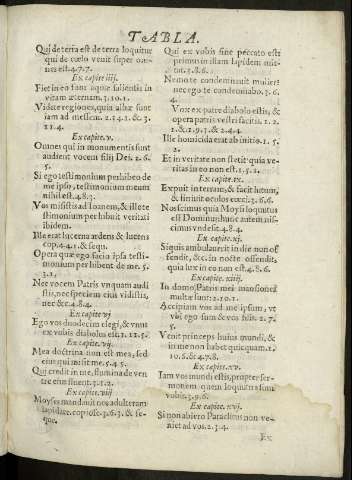 TABLA.
Qui de terra est de terra loquitur
qui de cœlo venit super om-
nes est.4.7.7.
Ex capite iiij.
Fiet in eo fons aquæ salientis in
vitam æternam.3.10.1.
Videte regiones, quia albæ sunt
iam ad messem.2.34.1. & 3.
11.4.
Ex capite.v.
Omnes qui in monumentis sunt
audient vocem filij Dei.2.6.
5.
Si ego testimonium perhibeo de
me ipso, testimonium meum
nihil est.4.8.3.
Vos misistis ad Ioanem, & ille te
stimonium perhibuit veritati
ibidem.
Ille erat lucerna ardens & lucens
cop.4.4.1. & sequ.
Opera quæ ego facio ipsa testi-
monium perhibent de me.5.
3.1.
Nec vocem Patris vnquam audi
stis, nec speciem eius vidistis,
nec &c.4.8.4.
Ex capite vj
Ego vos duodecim elegi, & vnus
ex vobis diabolus est.1.12.5.
Ex capite.vij.
Mea doctrina non est mea, sed
eius qui misit me.5.4.5.
Qui credit in me, flumina de ven
tre eius fluent.3.1.2.
Ex capite.viij
Moyses mandauit nos adulteram
lapidare. copiose.3.6.3. & se-
que.
Qui ex vobis sine peccato est
primus in illam lapidem mit-
tat.3.8.6.
Nemo te condemnauit mulier?
nec ego te condemnabo.3.6.
4
Vox ex patre diabolo estis, &
opera patris vestri facitis.2.2.
1. & 2.9.3. & 2.4.4.
Ille homicida erat ab initio.1.5.
2.
Et in veritate non stetit quia ve-
ritas in eo non est.1.5.2.
Ex capite.ix.
Expuit in terram, & facit lutum,
& liniuit oculos cœci.3.6.6.
Nos scimus quia Moysi loquutus
est Dominus hunc autem nes-
cimus vnde sit.4.8.4.
Ex capite.xj.
Si quis ambulauerit in die non of
fendit, &c. in nocte offendit,
quia lux in eo non est.4.8.6.
Ex capite.xiiij.
In domo Patris mei mansiones
multæ sunt.2.10.1.
Accipiam vos ad me ipsum, vt
vbi ego sum & vos sitis.2.7.
5.
Venit princeps huius mundi, &
in me non habet quicquam.1.
10.6. & 4.7.8.
Ex capite.xv.
Iam vos mundi estis, propter ser-
monem quem loquutus sum
vobis.3.9.6.
Ex capite.xvj.
Si non abiero Paraclitus non ve-
niet ad vos.2.3.4.
Ex